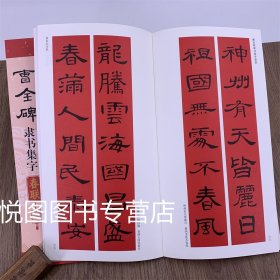 神州有天皆麗日
祖國無處不春風
龍騰雲海國昌盛
春滿人間民樂安
曹全碑
隶书集字
春联
悦图图书专营店